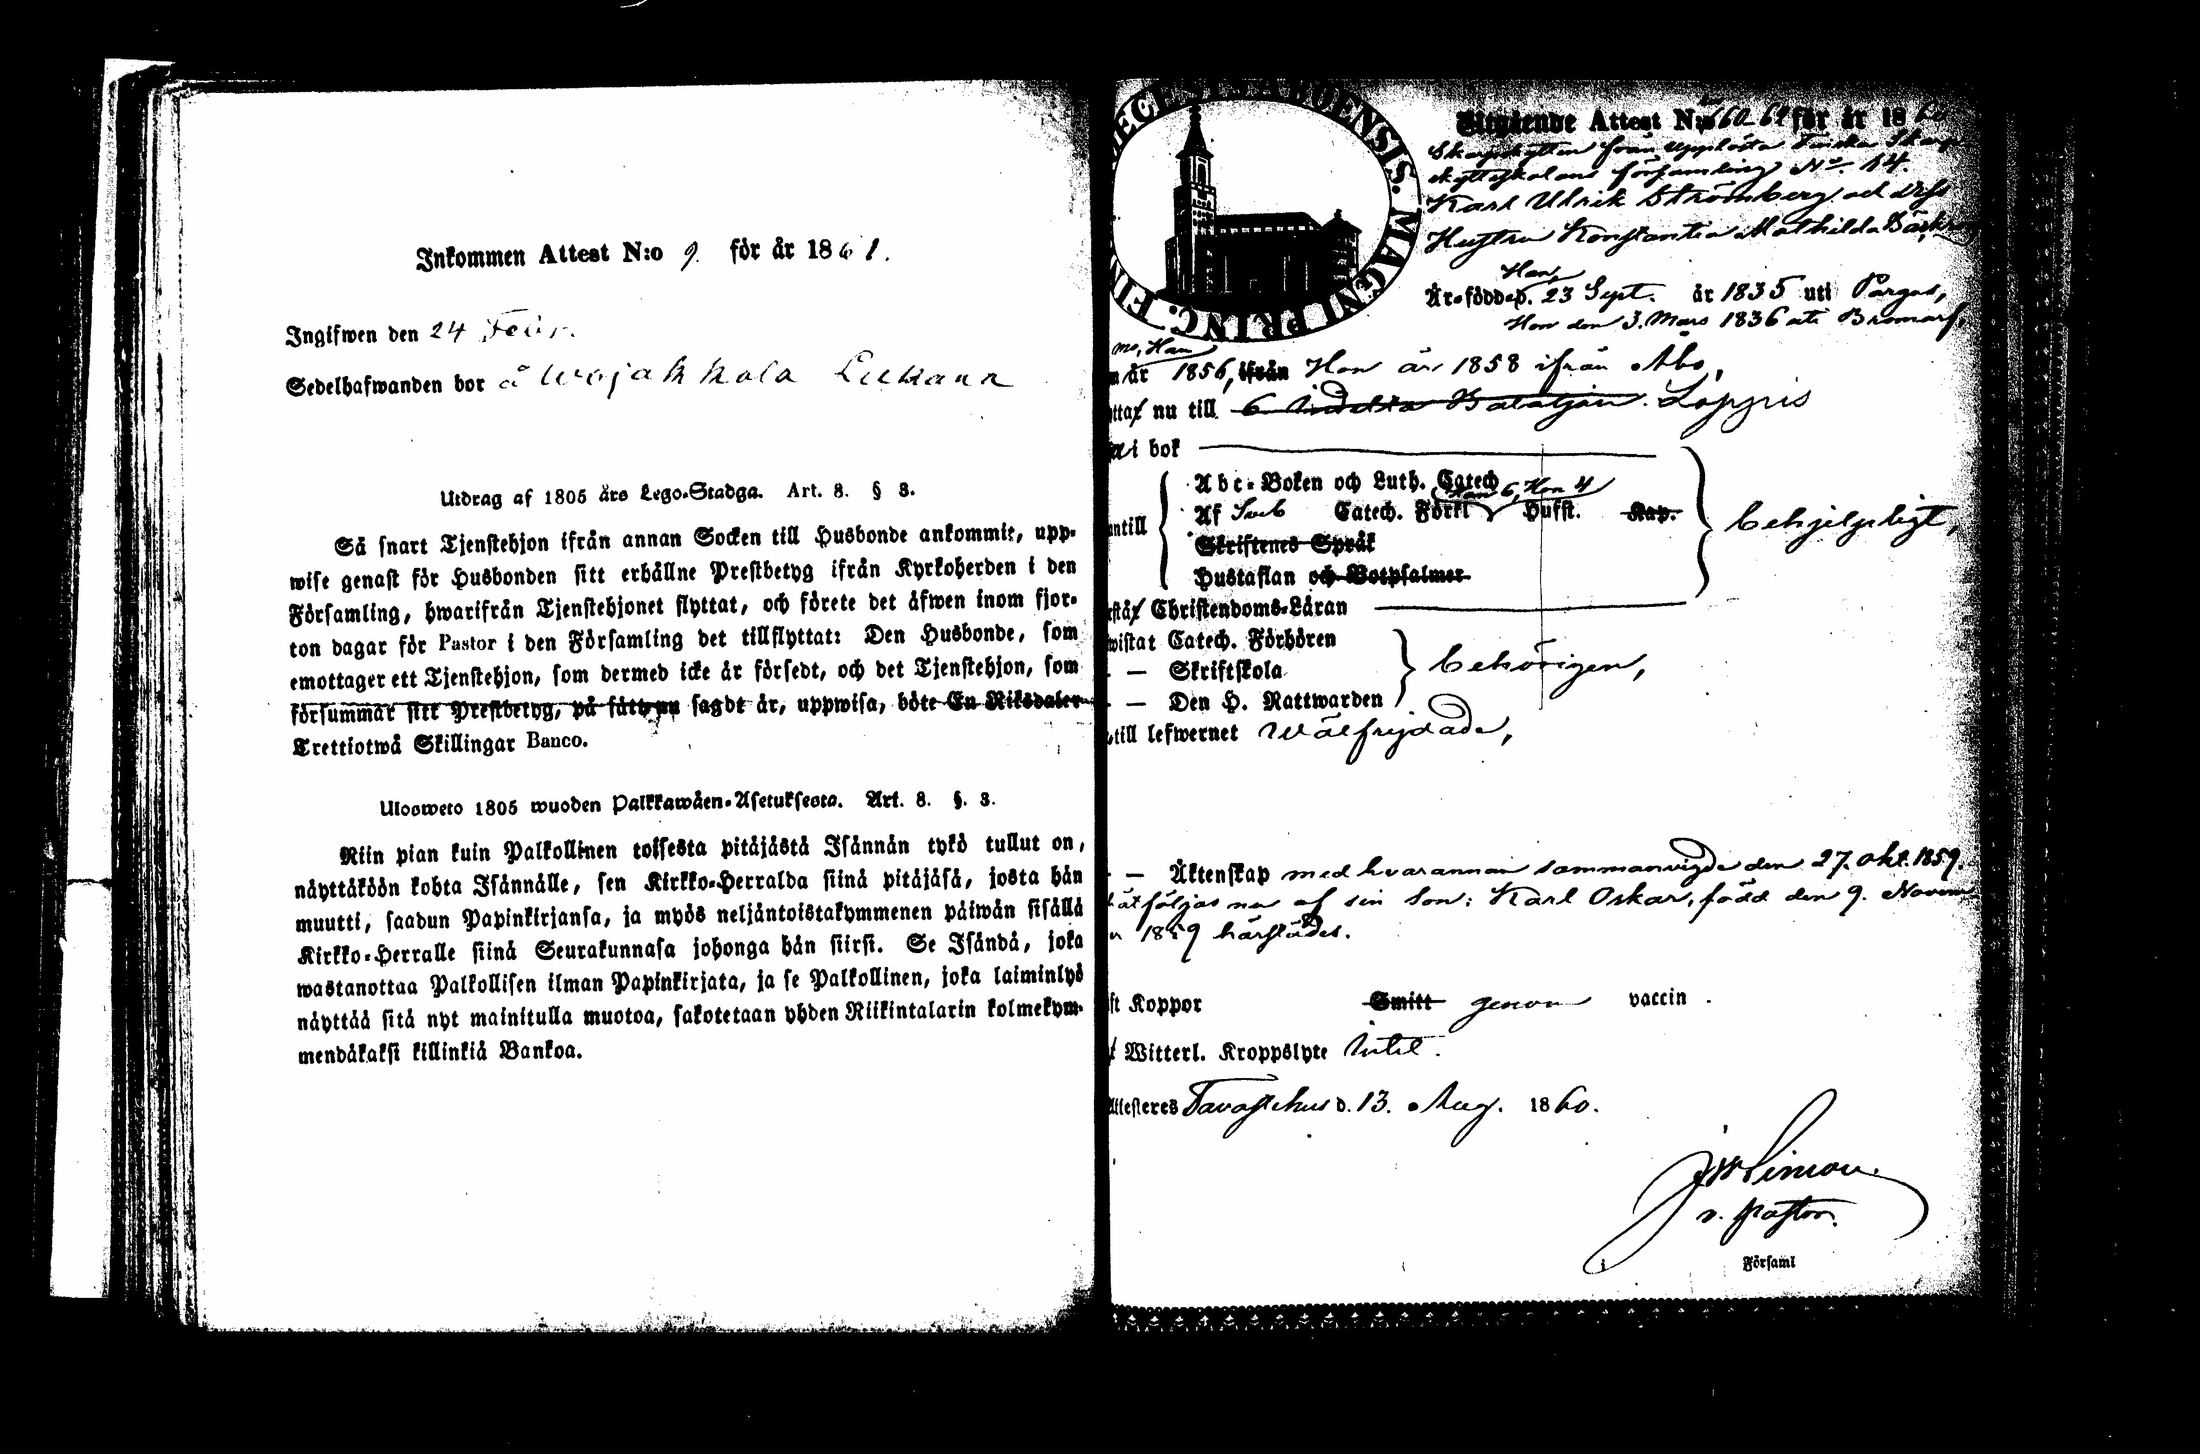 Inkommen Attest N:o 9. för år 1861.
Ingifwen den 24 Febr.
Sedelhafwanden bor å Wojakkala Lukana
Utdrag af 1805 års Lego-Stadga. Art. 8. § 3.
Så snart Tjenstehjon ifrån annan Socken till Husbonde ankommit, upp-
wise genast för Husbonden sitt erhållne Prestbetyg ifrån Kyrkoherden i den
Församling, hwarifrån Tjenstehjonet flyttat, och förete det äfwen inom fjor-
ton dagar för Pastor i den Församling det tillflyttat: Den Husbonde, som
emottager ett Tjenstehjon, som dermed icke är försedt, och det Tjenstehjon, som
försummar sitt Prestbetyg, på sätt nu sagdt är, uppwisa, böte En Riksdaler
Trettiotwå Skillingar Banco.
Ulosweto 1805 wuoden Palkkawäen-Asetuksesta. Art. 8. §. 3.
Niin pian kuin Palkollinen toisesta pitäjästä Isännän tykö tullut on,
näyttäköön kohta Isännälle, sen Kirkko-Herralda siinä pitäjäsä, josta hän
muutti, saadun Papinkirjansa, ja myös neljäntoistakymmenen päiwän sisällä
Kirkko-Herralle siinä Seurakunnasa johonga hän siirsi. Se Isändä, joka
wastanottaa Palkollisen ilman Papinkirjata, ja se Palkollinen, joka laiminlyö
näyttää sitä nyt mainitulla muotoa, sakotetaan yhden Riikintalarin kolmekym-
mendäkaksi killinkiä Bankoa.
ECESIS ABOENSIS. MAGNI PRINC. FIN
Utgående Attest N:o 60-62 för år 1860
Skarpskytten från upplösta Finska Skarp
skytteskolans församling No. 14.
Karl Ulrik Strömberg och dess
Hustru Konstantia Mathilda
Han
Är födde d. 23 Sept. år 1835 uti Pargas,
Hon den 3. Mars 1836 uti Bromarf,
mo, Han
m år 1856, ifrån Hon år 1858 ifrån Åbo,
ttat nu till 6 Indelta Bataljon. Loppis
i bok
Abc-Boken och Luth. Catech
Han 6, Hon 4
Af Sveb Catech. Förkl Hufst. Kap.
antill
behjelpligt,
Skriftenes Språk
Hustaflan och Botpsalmer
Christendoms-Läran
wistat Catech. Förhören
— Skriftskola behörigen,
— Den H. Nattwarden
till lefwernet Wälfrejdade,
— Äktenskap med hvarannan sammanvigde den 27. okt. 1859.
åtföljas nu af sin Son: Karl Oskar, född den 9. Novem-
r 1859 härstädes.
ft Koppor Smitt genom vaccin.
Witterl. Kroppslyte intet.
Attesteres Tavastehus d. 13. Aug. 1860.
v. Pastor.
Församl